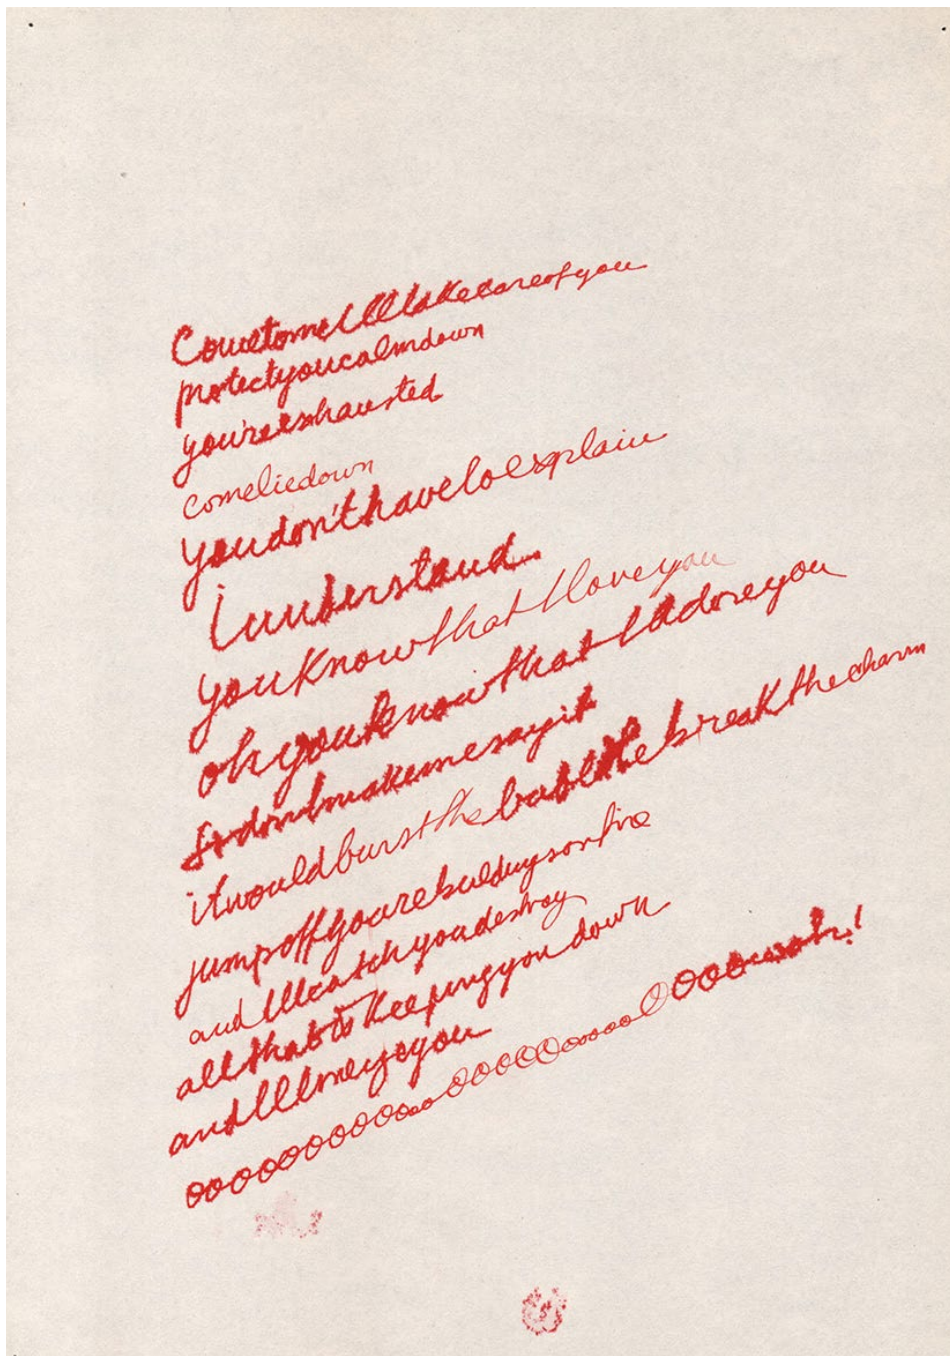 Cometome I'lltakecareofyou
protectyoucalmdown
you'reexhausted
comeliedown
Youdon'thavetoexplain
iunderstand.
youknowthatIloveyou
ohyouknowthatIadoreyou
Sodontmakemesayit
itwouldburstthebubblebreakthecharm
jumpoffyourebuildingsonfire
andIllcatchyoudestroy
allthatiskeepingyoudown
andIll youooooooooooooooooooooooooooooooh!